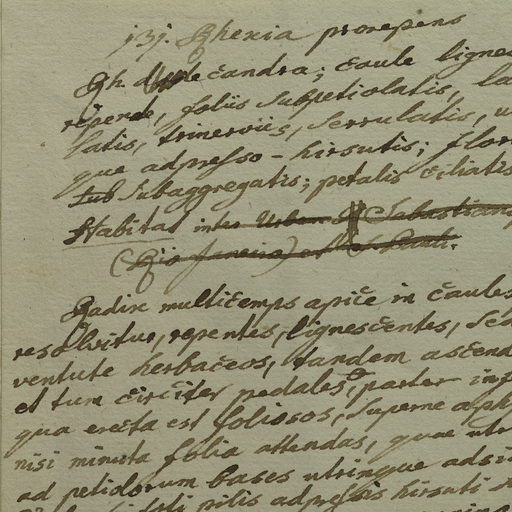 131. Rhexia prorepens
Rh. decandra; caule lignes
repente, foliis subpetiolatis, la
latis, trinerviis, serrulatis, u
que adpresso-hirsutis; flor
subaggregatis; petalis ciliatis
Habitat inter Urbem S. Sebastiani
(Rio Janeiro) et S. Pauli.
Radix multiceps apice in caules
resolvitur, repentes, lignescentes, sed
ventute herbaceos, tandem ascend
et tum circiter pedales, parter inf
qua erecta est foliosos, superne aphy
nisi minuta folia attendas, quae utr
ad petiolorum bases utrinque adsi
pilis adpressis hirsuti